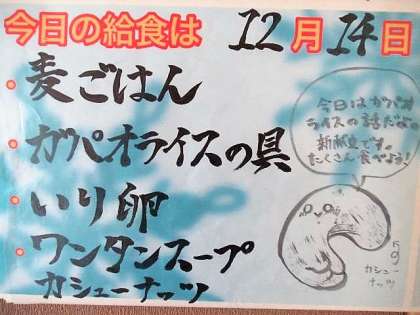 今日の給食は 12月14日
麦ごはん
ガパオライスの具
いり卵
ワンタンスープ
カシューナッツ
今日はガパオ
ライスの話だよ。
新献立です。
たくさん食べよう!
5g
カシュー
ナッツ